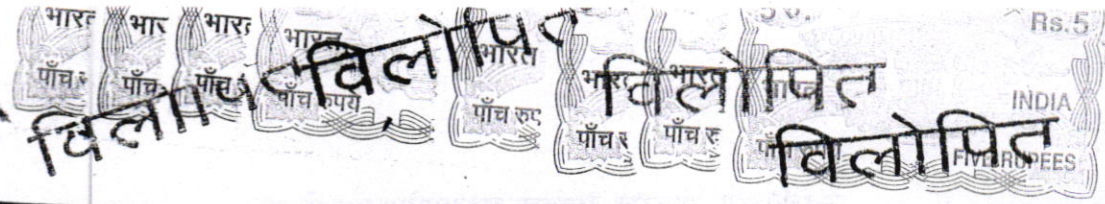 भारत भार भारत भारत भारत भारत भारत Rs.5
पाँच पाँच पाँच पाँच रुपये पाँच रुप पाँच पाँच INDIA
FIVE RUPEES
विलोपित विलोपित विलोपित विलोपित